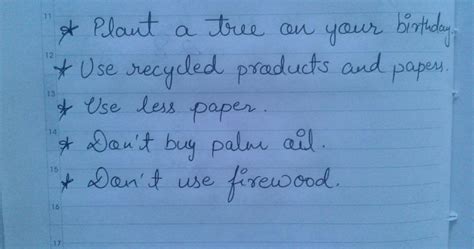 11
* Plant a tree on your birthday.
12
* Use recycled products and papers.
13
* Use less paper.
14
* Don't buy palm oil.
15
* Don't use firewood.
16
17